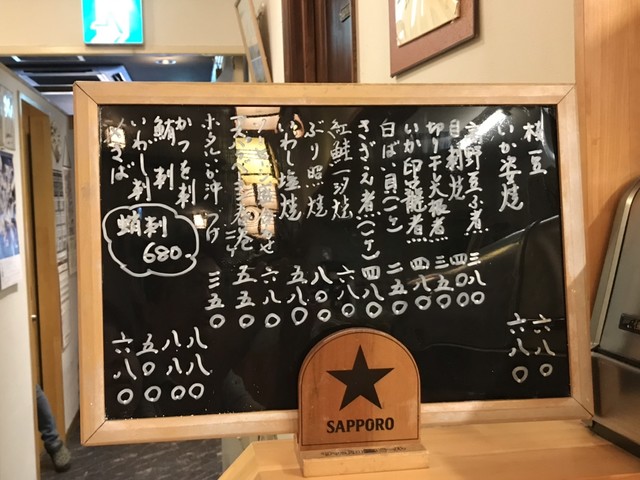 枝豆 六八〇
いか姿焼 六八〇
高野豆ふ煮 三八〇
目刺焼 四〇〇
切り干大根煮 三五〇
いか印籠煮 四八〇
白ばい貝(一ケ) 二五〇
さざえ煮(一ケ) 四八〇
紅鮭一夕焼 六八〇
ぶり照焼 八〇〇
いわし塩焼 五八〇
六八〇
五五〇
ホタルいか沖づけ 三五〇
かつを刺 八八〇
鮪刺 八八〇
いわし刺 五〇〇
〆さば 六八〇
蛸刺
680
SAPPORO